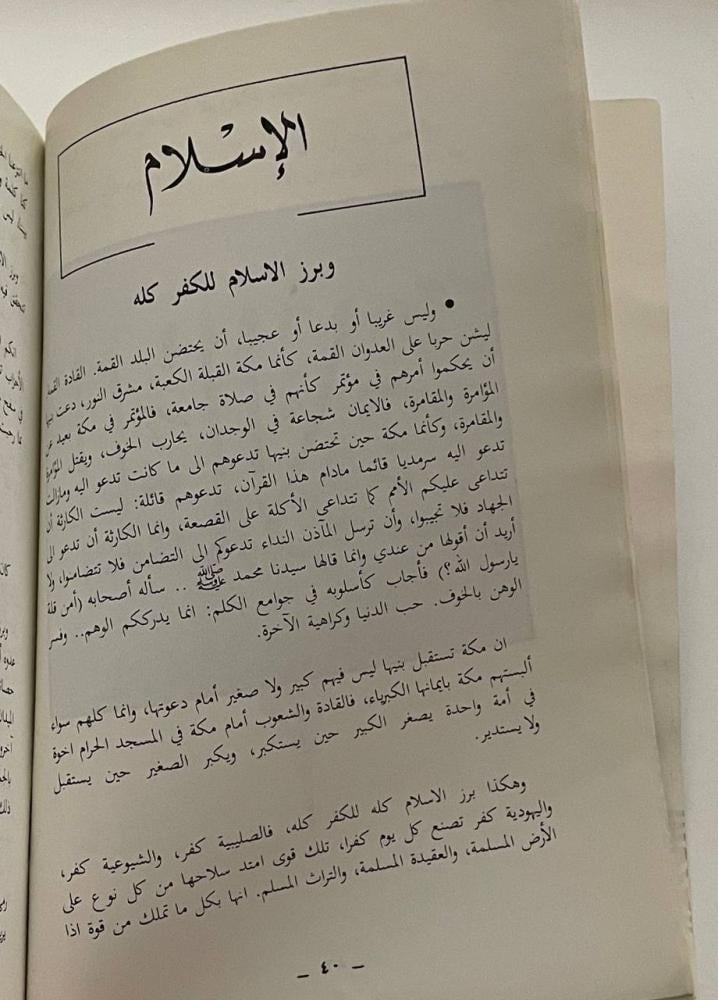 الإسلام
وبرز الاسلام للكفر كله
• وليس غريبا أو بدعا أو عجيبا، أن يحتضن البلد القمة. القادة القمة
ليشن حربا على العدوان القمة، كأنما مكة القبلة الكعبة، مشرق النور، دعت بنيها
أن يحكموا أمرهم في مؤتمر كأنهم في صلاة جامعة، فالمؤتمر في مكة بعيد عن
المؤامرة والمقامرة، فالايمان شجاعة في الوجدان، يحارب الخوف، ويقتل المؤامرة
والمقامرة، وكأنما مكة حين تحتضن بنيها تدعوهم الى ما كانت تدعو اليه ومازالت
تدعو اليه سرمديا قائما مادام هذا القرآن، تدعوهم قائلة: ليست الكارثة أن
تتداعى عليكم الأمم كما تتداعى الأكلة على القصعة، وانما الكارثة أن تدعو الى
الجهاد فلا تجيبوا، وأن ترسل المآذن النداء تدعوكم الى التضامن فلا تتضامنوا، ولا
أريد أن أقولها من عندي وانما قالها سيدنا محمد ﷺ .. سأله أصحابه (أمن قلة
يارسول الله؟) فأجاب كأسلوبه في جوامع الكلم: انما يدرككم الوهم.. وفسر
الوهن بالخوف. حب الدنيا وكراهية الآخرة.
ان مكة تستقبل بنيها ليس فيهم كبير ولا صغير أمام دعوتها، وانما كلهم سواء
ألبستهم مكة بايمانها الكبرياء، فالقادة والشعوب أمام مكة في المسجد الحرام اخوة
في أمة واحدة يصغر الكبير حين يستكبر، ويكبر الصغير حين يستقبل
ولا يستدير.
وهكذا برز الاسلام كله للكفر كله، فالصليبية كفر، والشيوعية كفر،
واليهودية كفر تصنع كل يوم كفرا، تلك قوى امتد سلاحها من كل نوع على
الأرض المسلمة، والعقيدة المسلمة، والتراث المسلم. انها بكل ما تملك من قوة اذا
– ٤٠ –